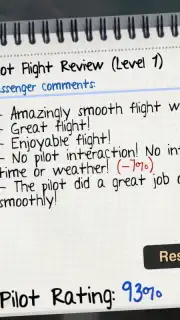 ot Flight Review (Level 1)
ssenger comments:
- Amazingly smooth flight w
- Great flight!
- Enjoyable flight!
- No pilot interaction! No in
time or weather! (-7%)
- The pilot did a great job o
smoothly!
Res
Pilot Rating: 93%